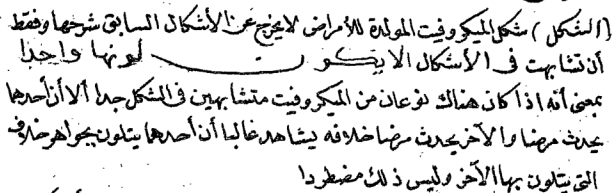 (الشكل) شكل الميكروفيت المولدة للأمراض لا يخرج عن الأشكال السابق شرحها وفقط
أن تشابهت فى الأشكال الا يكون لونها واحدا
بمعنى أنه اذا كان هناك نوعان من الميكروفيت متشابهين فى الشكل جدا ألا أن أحدهما
يحدث مرضا والآخر يحدث مرضا خلافه يشاهد غالبا أن أحدهما يتلون بجواهر خلاف
التى يتلون بها الآخر وليس ذلك مضطردا